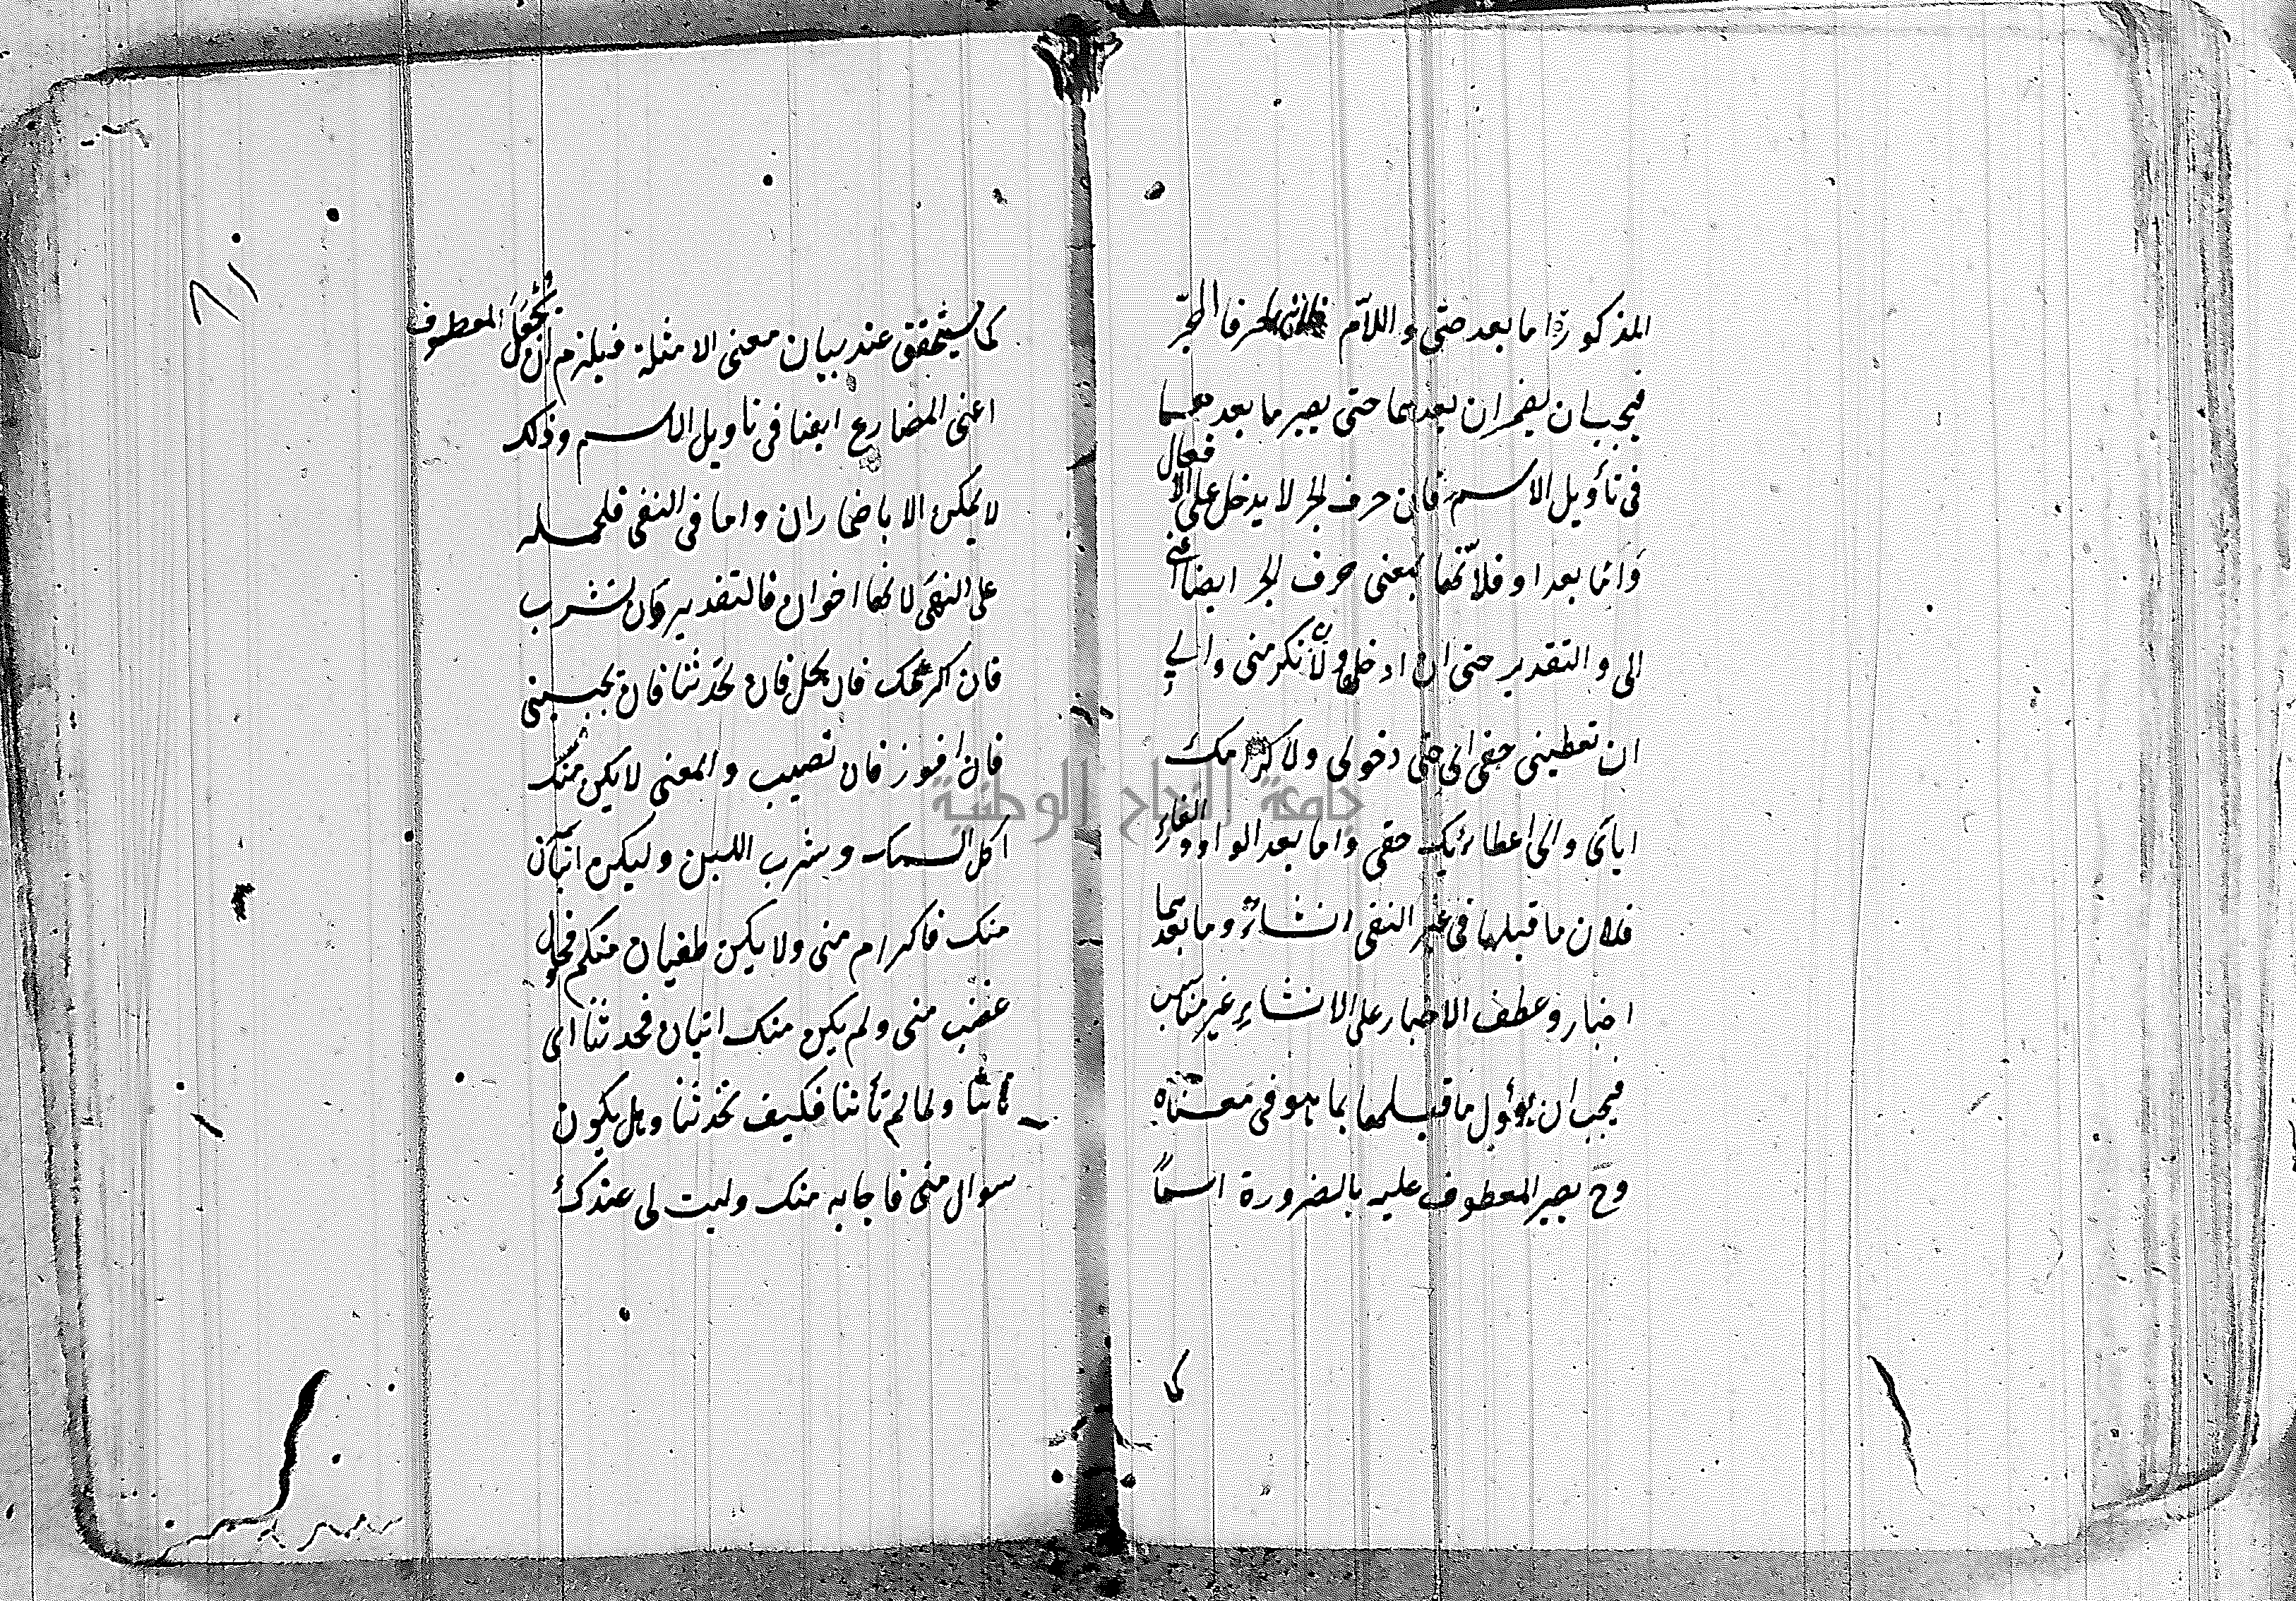 المذكورة اما بعد حتى واللام حرفا الجرّ
فيجب ان يضمر ان بعدهما حتى يصير ما بعدهما
فى تأويل الاسم فان حرف الجر لا يدخل على الافعال
وَامّا بعد او فلانّها بمعنى حرف الجر ايضا اعنى
الى والتقدير حتى ان ادخل ولأن تكرمنى والى
ان تعطينى حقى اى حتى دخولى ولاكرامك
اياى والى اعطائك حقى واما بعد الواو والفاء
فلان ما قبلها فى غير النفى انشاء وما بعدهما
اخبار وعطف الاخبار على الانشاء غير مناسب
فيجب ان يؤول ما قبلهما بما هو فى معناه
وح يصير المعطوف عليه بالضرورة اسمًا
كما
٨١
كما سيتحقق عند بيان معنى الامثلة فيلزم ان يُجْعَلَ المعطوف
اعنى المضارع ايضا فى تاويل الاسم وذلك
لا يمكن الا باضمار ان واما فى النفى فلحمله
على النهى لانهما اخوان فالتقدير وان تشرب
فان اكرمك فان يحل فان تحدثنا فان تجيبنى
فان افوز فان تصيب والمعنى لا يكن منك
اكل السمك وشرب اللبن وليكن اتيان
منك فاكرام منى ولا يكن طغيان منكم فحلول
غضب منى ولم يكن منك اتيان فحدثنا اى
ما تأتنا ولما لم تأتنا فكيف تحدثنا وهل يكون
سوال منى فاجابه منك وليت لى عندك
جامعة النجاح الوطنية